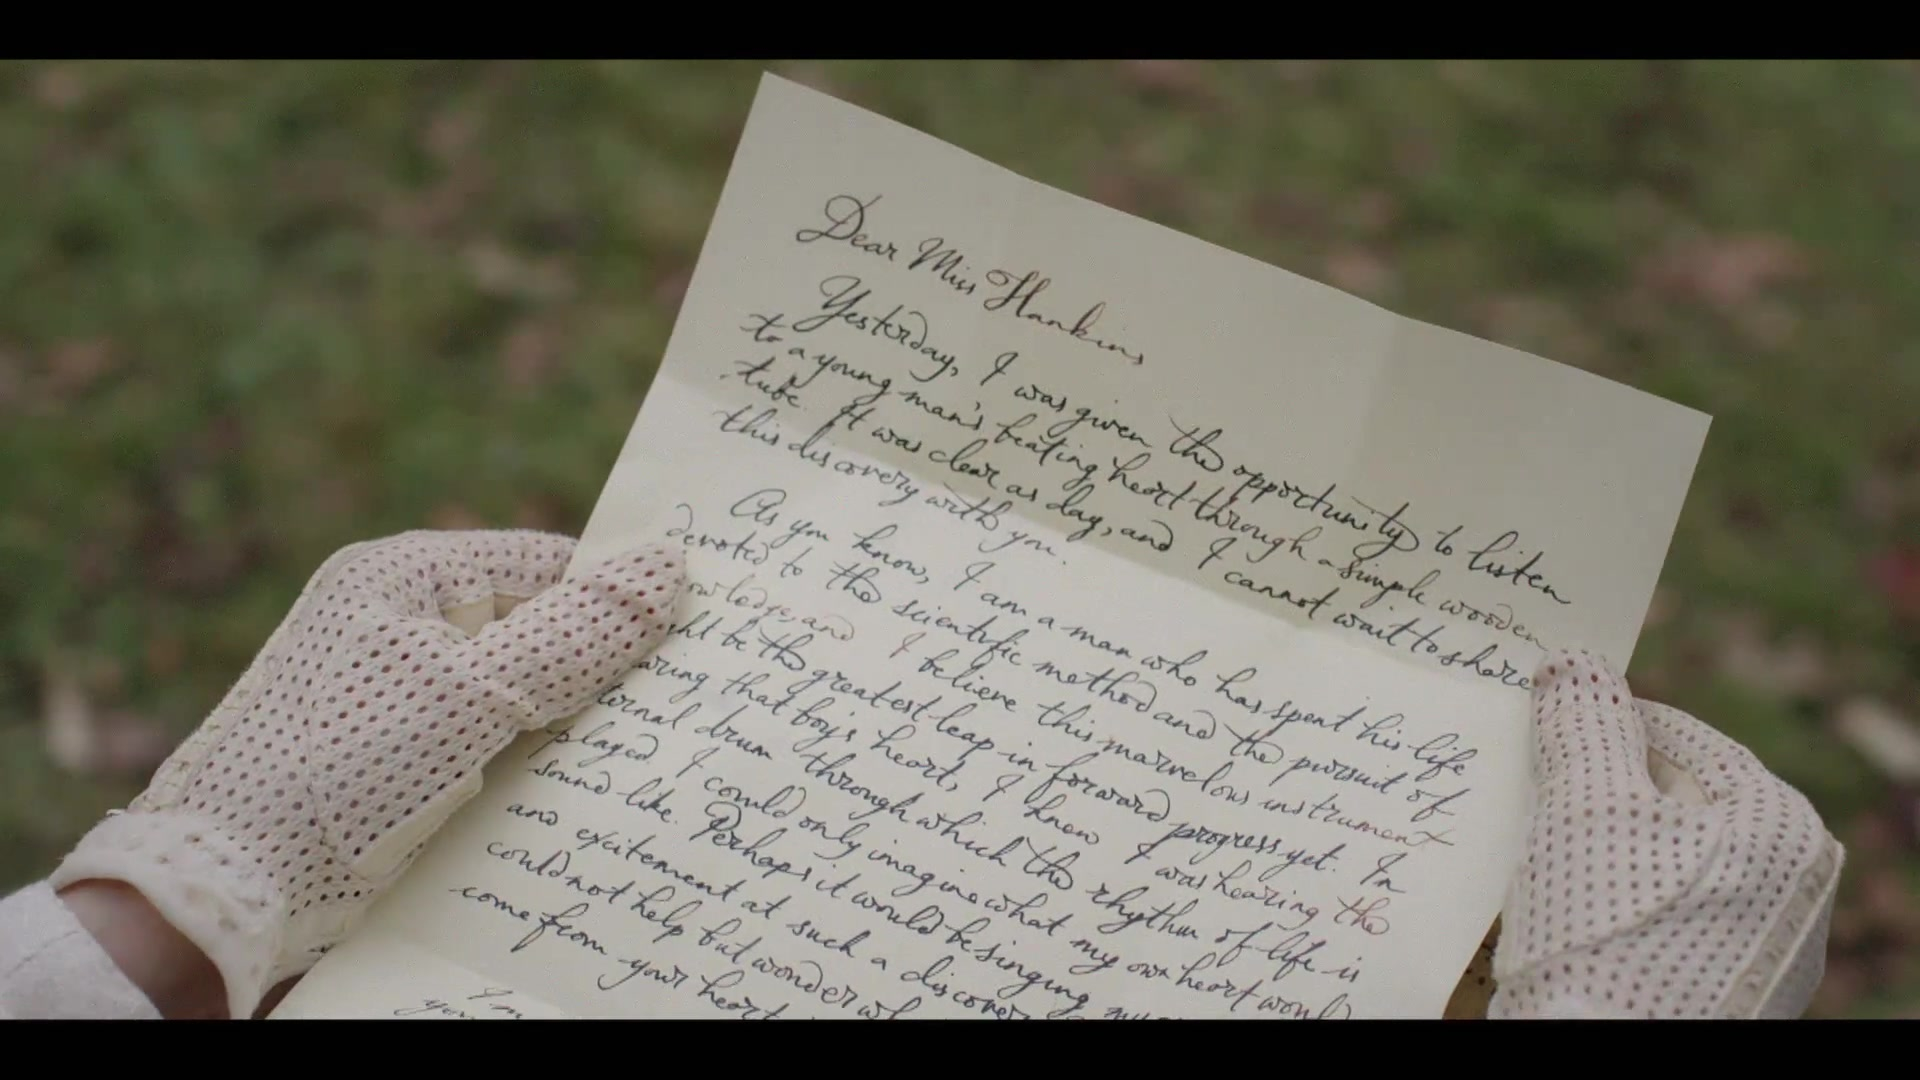 Dear Miss Hankins,
Yesterday, I was given the opportunity to listen
to a young man's beating heart through a simple wooden
tube. It was clear as day, and I cannot wait to share
this discovery with you.
As you know, I am a man who has spent his life
devoted to the scientific method and the pursuit of
owledge, and I believe this marvelous instrument
ght be the greatest leap in forward progress yet. In
aring that boy's heart, I knew I was hearing the
ternal drum through which the rhythm of life is
played. I could only imagine what my own heart would
sound like. Perhaps it would be singing
and excitement at such a discover
could not help but wonder wh
come from your heart